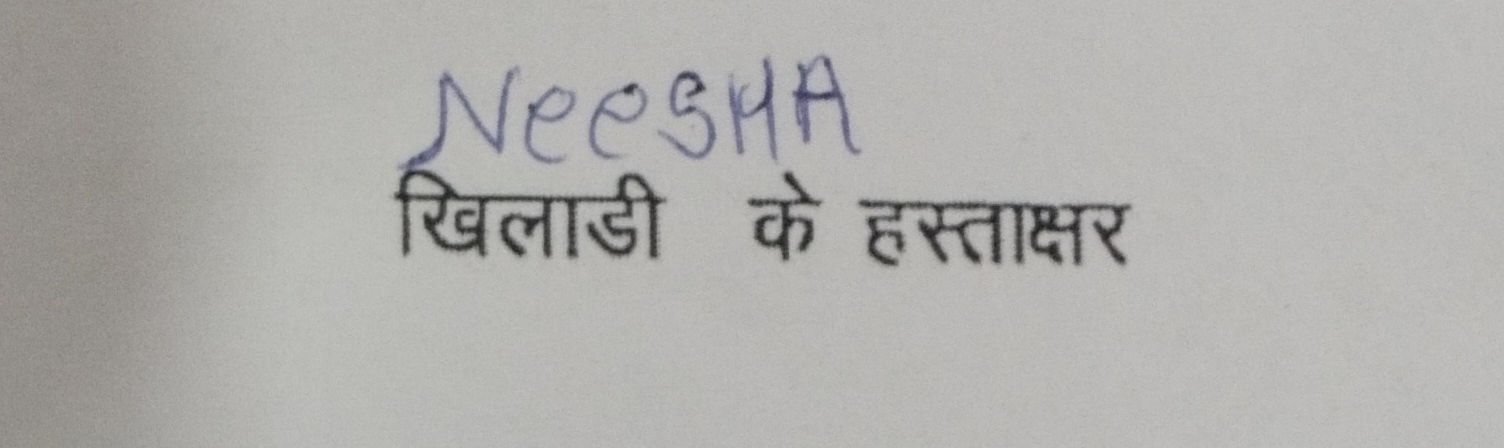 NeeSHA
खिलाडी के हस्ताक्षर